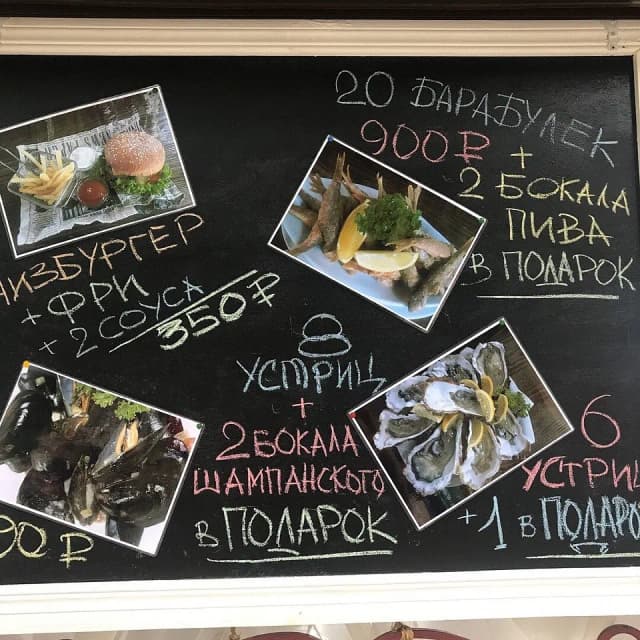 20 БАРАБУЛЕК
900₽ +
2 БОКАЛА
ПИВА
В ПОДАРОК
ИЗБУРГЕР
+ ФРИ
+ 2 СОУСА
350₽
8
УСТРИЦ
+
2 БОКАЛА
ШАМПАНСКОГО
В ПОДАРОК
6
УСТРИЦ
+1 В ПОДАРО
90₽